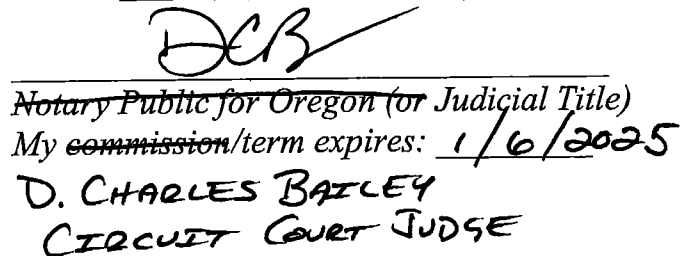 DCB
Notary Public for Oregon (or Judicial Title)
My commission/term expires: 1/6/2025
D. CHARLES BAILEY
CIRCUIT COURT JUDGE